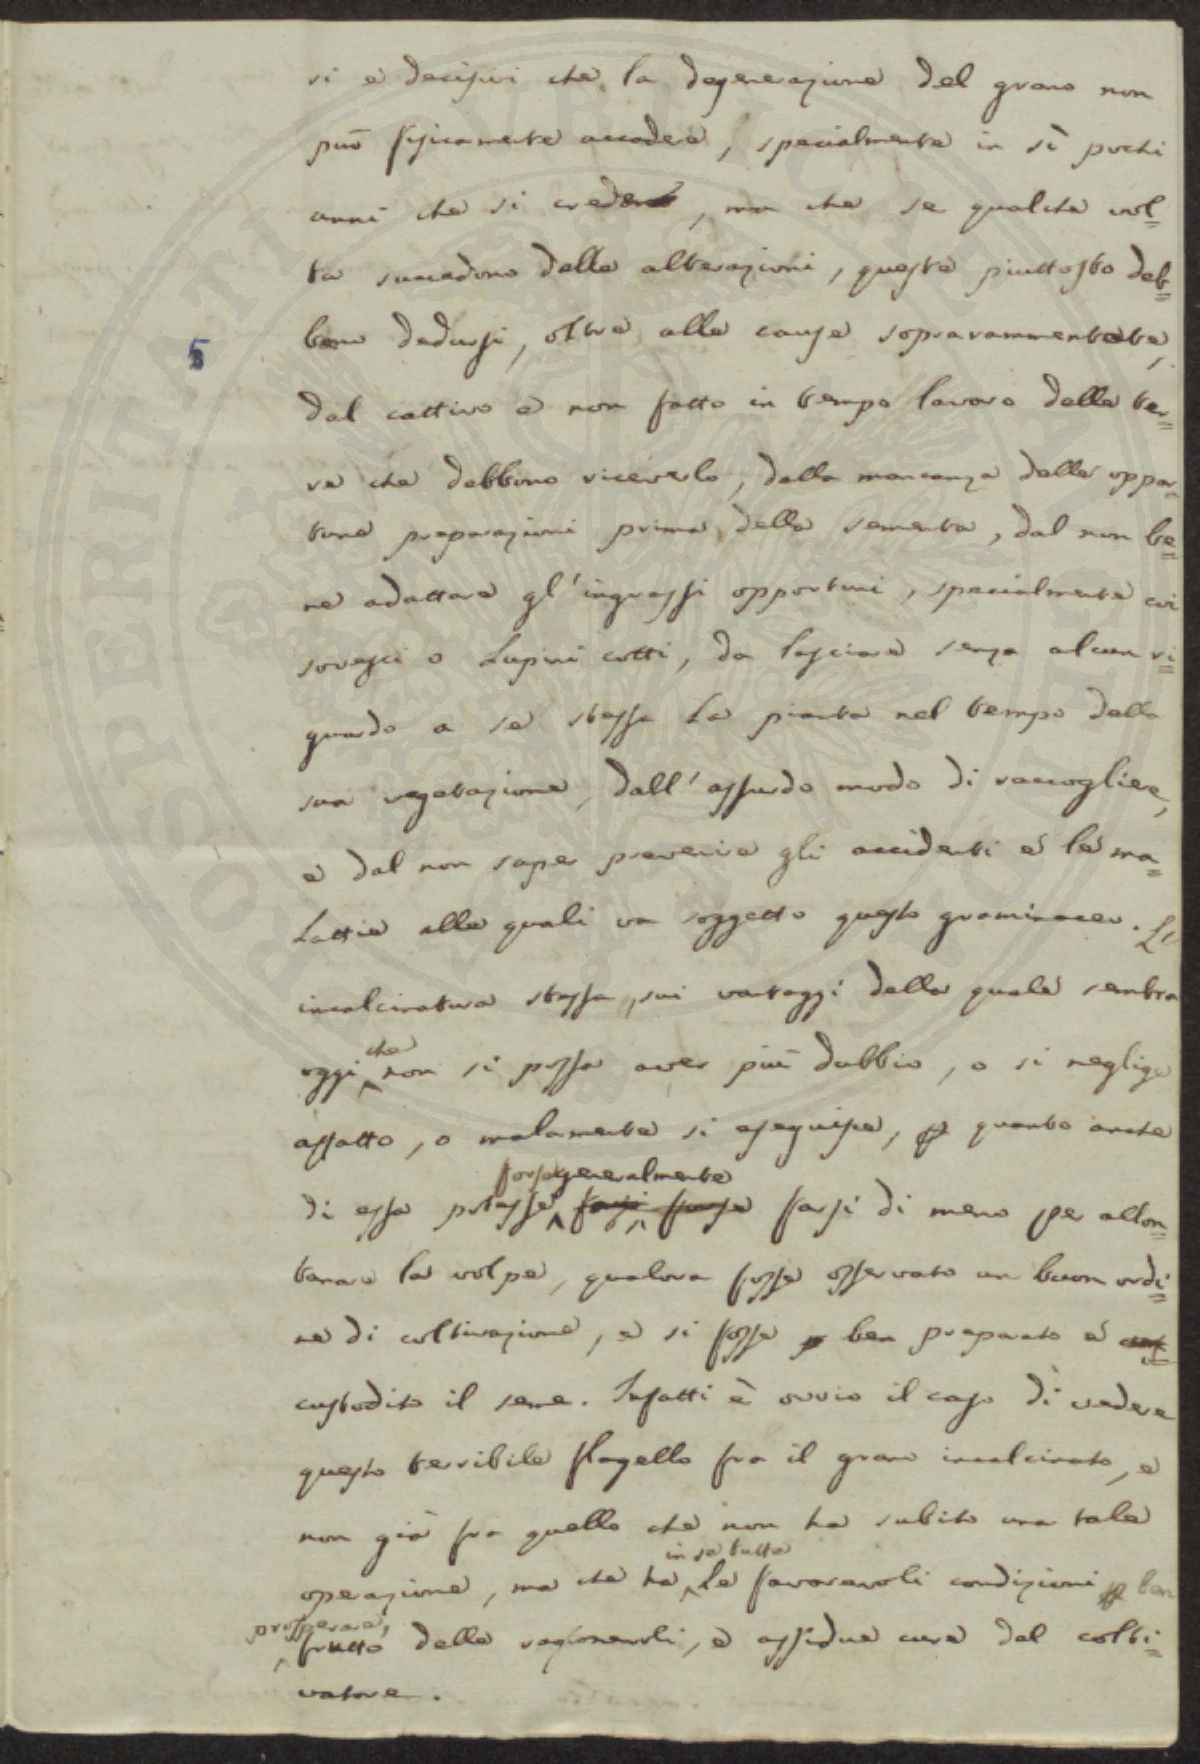 si e decisivi che la degenerazione del grano non
può fisicamente accadere, specialmente in sì pochi
anni che si crede, ma che se qualche vol=
ta succedono delle alterazioni, queste piuttosto deb=
bono dedursi, oltre alle cause sopravammentate,
5
dal cattivo e non fatto in tempo lavoro delle ter=
re che debbono riceverlo, dalla mancanza delle oppor=
tune preparazioni prima della sementa, dal non be=
ne adattare gl'ingrassi opportuni, specialmente coi
sovesci o Lupini cotti, da lasciare senza alcun ri=
guardo a se stessa La pianta nel tempo della
sua vegetazione, dall'assurdo modo di raccogliere,
e dal non saper prevenire gli accidenti e le ma=
Lattie alle quali va soggetto questo graminaceo. L'
incalcinatura stessa, sui vantaggi della quale sembra
oggi che non si possa aver più dubbio, o si neglige
affatto, o malamente si eseguisce, quanto anche
di essa potesse forse generalmente farsi di meno per allon=
tanare la volpe, qualora fosse osservato un buon ordi=
ne di coltivazione, e si fosse ben preparato e
custodito il seme. Infatti è ovvio il caso di vedere
questo terribile flagello fra il grano incalcinato, e
non già fra quello che non ha subito una tale
operazione, ma che ha in se tutte Le favorevoli condizioni p ben
prosperare, frutto delle ragionevoli, e assidue cure del colti=
vatore.
PROSPERITATI PUBLICAE